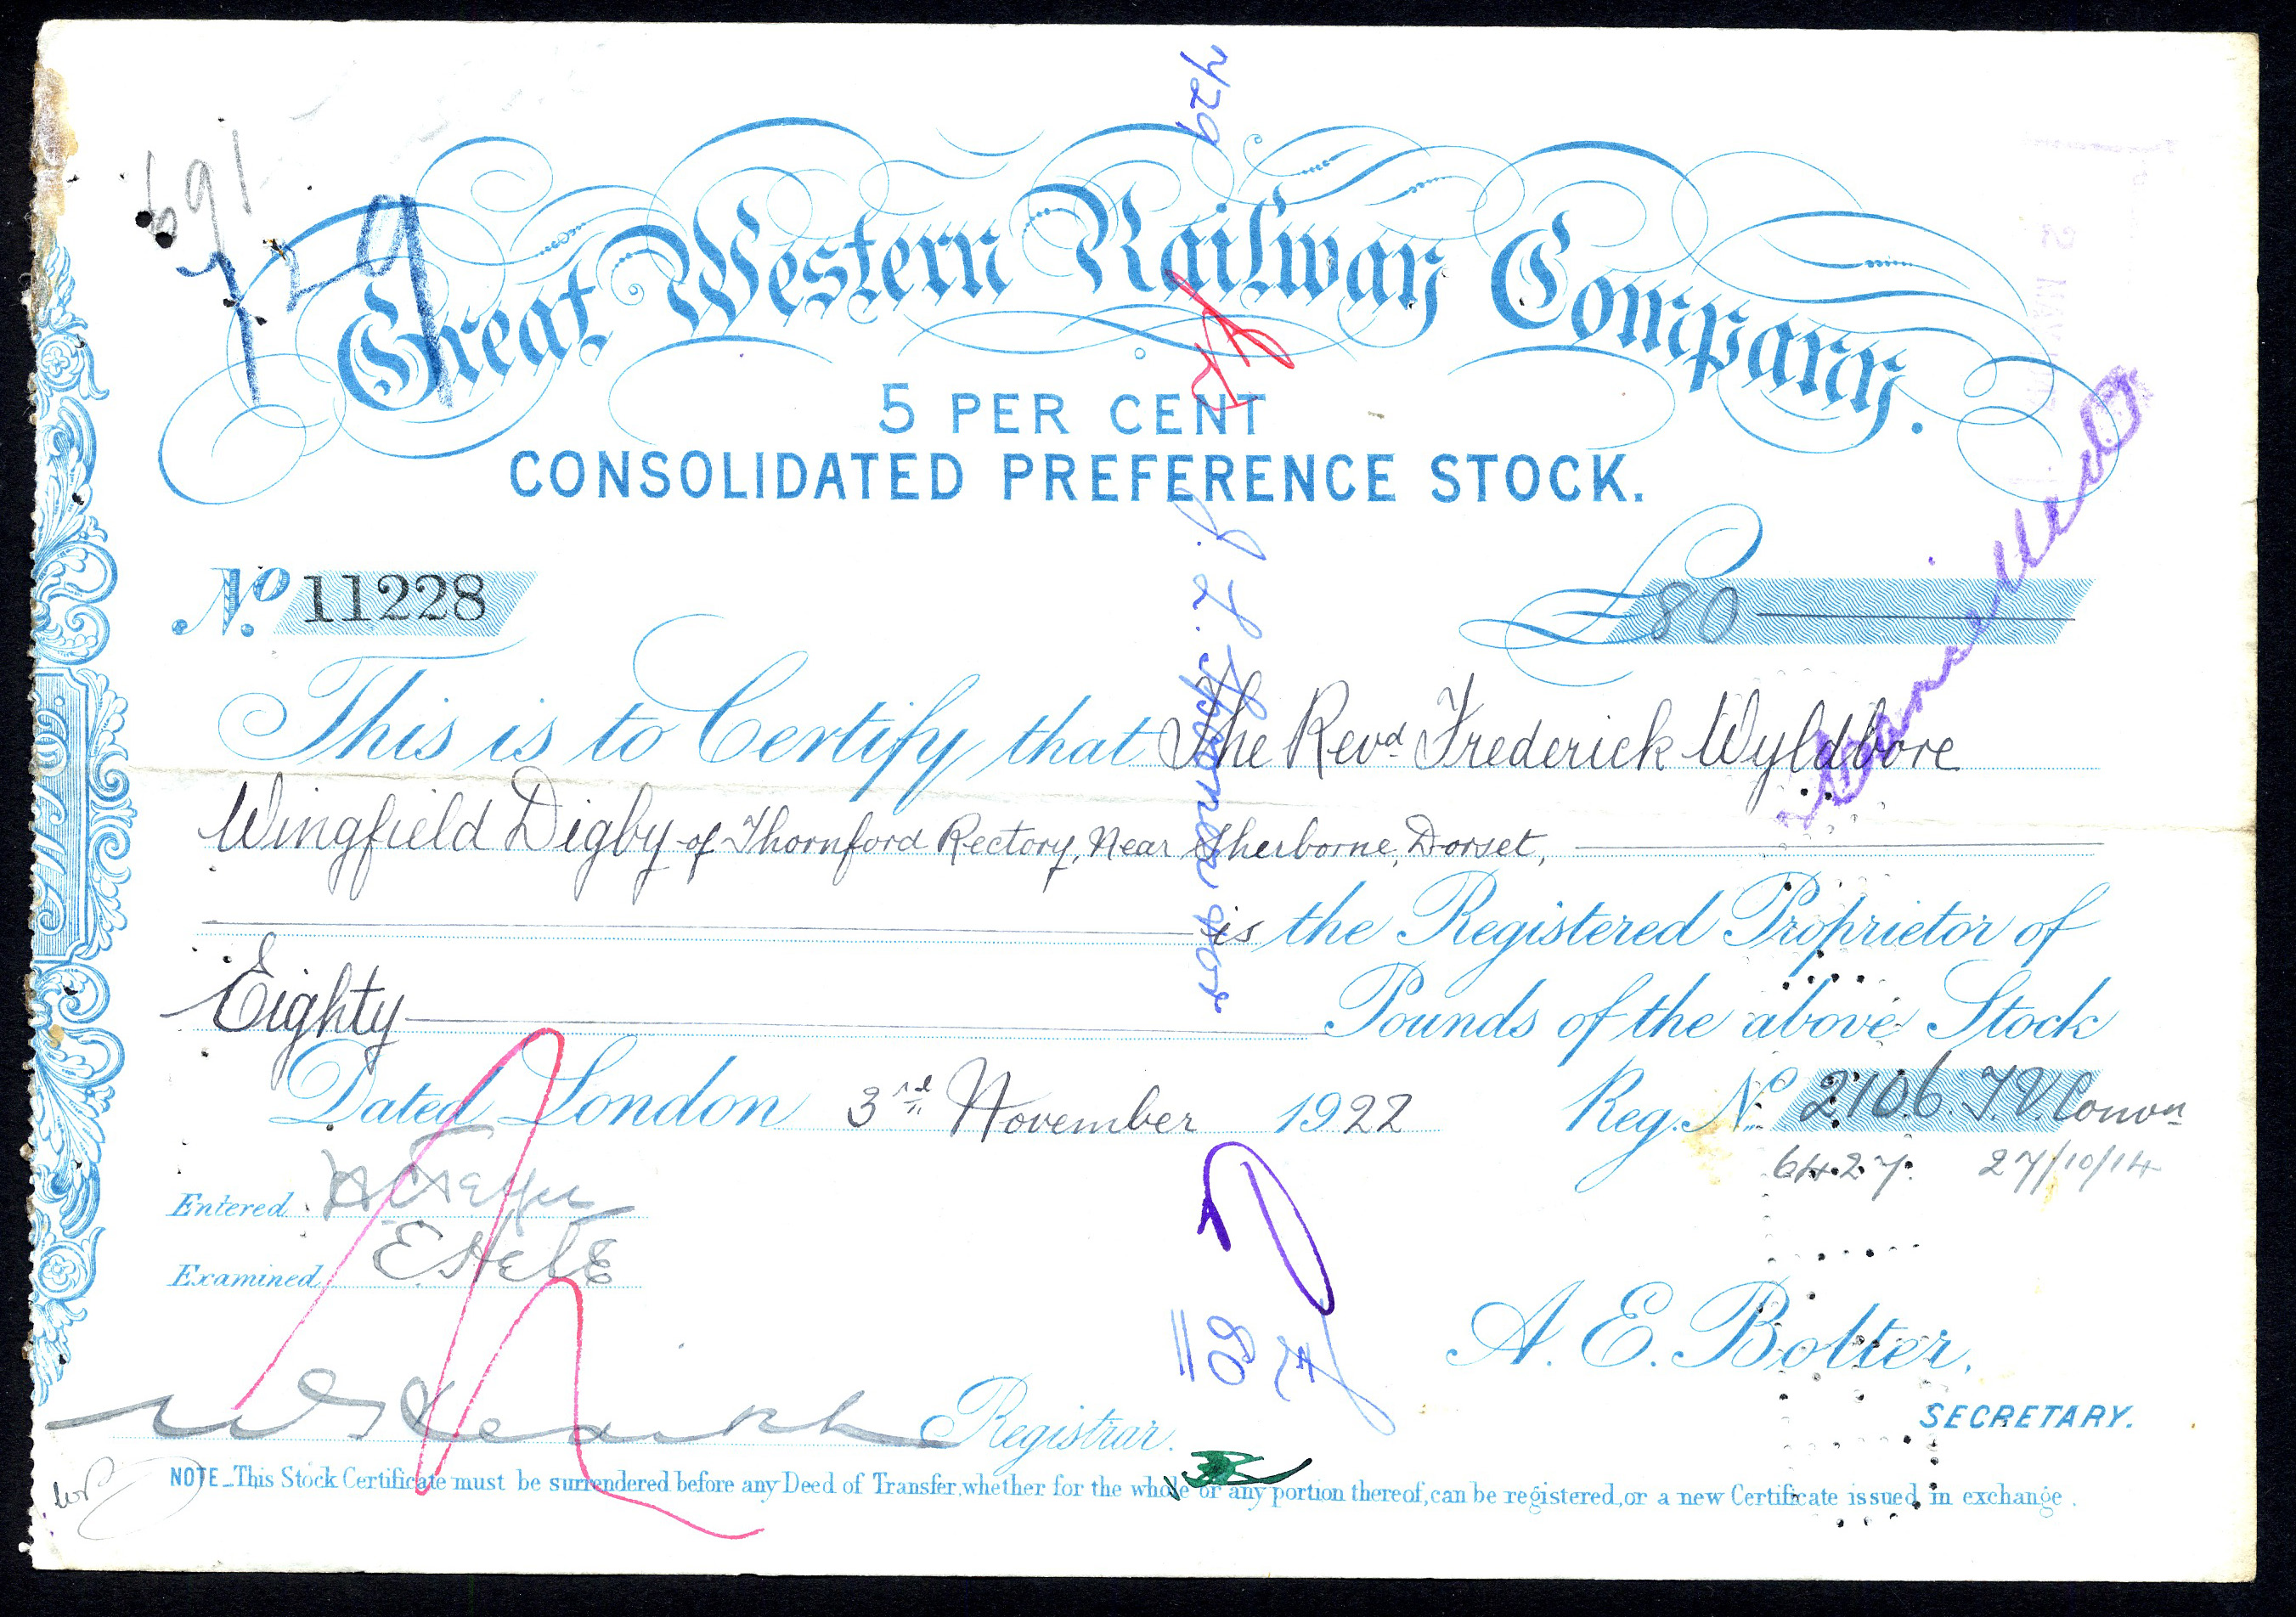 691
729
429
Great Western Railway Company.
5 PER CENT
CONSOLIDATED PREFERENCE STOCK.
No. 11228
£80
This is to Certify that The Revd. Frederick Wyldbore
Wingfield Digby of Thornford Rectory, Near Sherborne, Dorset,
is the Registered Proprietor of
Eighty Pounds of the above Stock
Dated London 3rd November 1922 Reg. No. 2106. T.V. Convn
6427. 27/10/14
Entered
Examined
80
A. E. Bolter.
SECRETARY.
Registrar.
NOTE_This Stock Certificate must be surrendered before any Deed of Transfer, whether for the whole or any portion thereof, can be registered, or a new Certificate issued in exchange.
G.W.R.